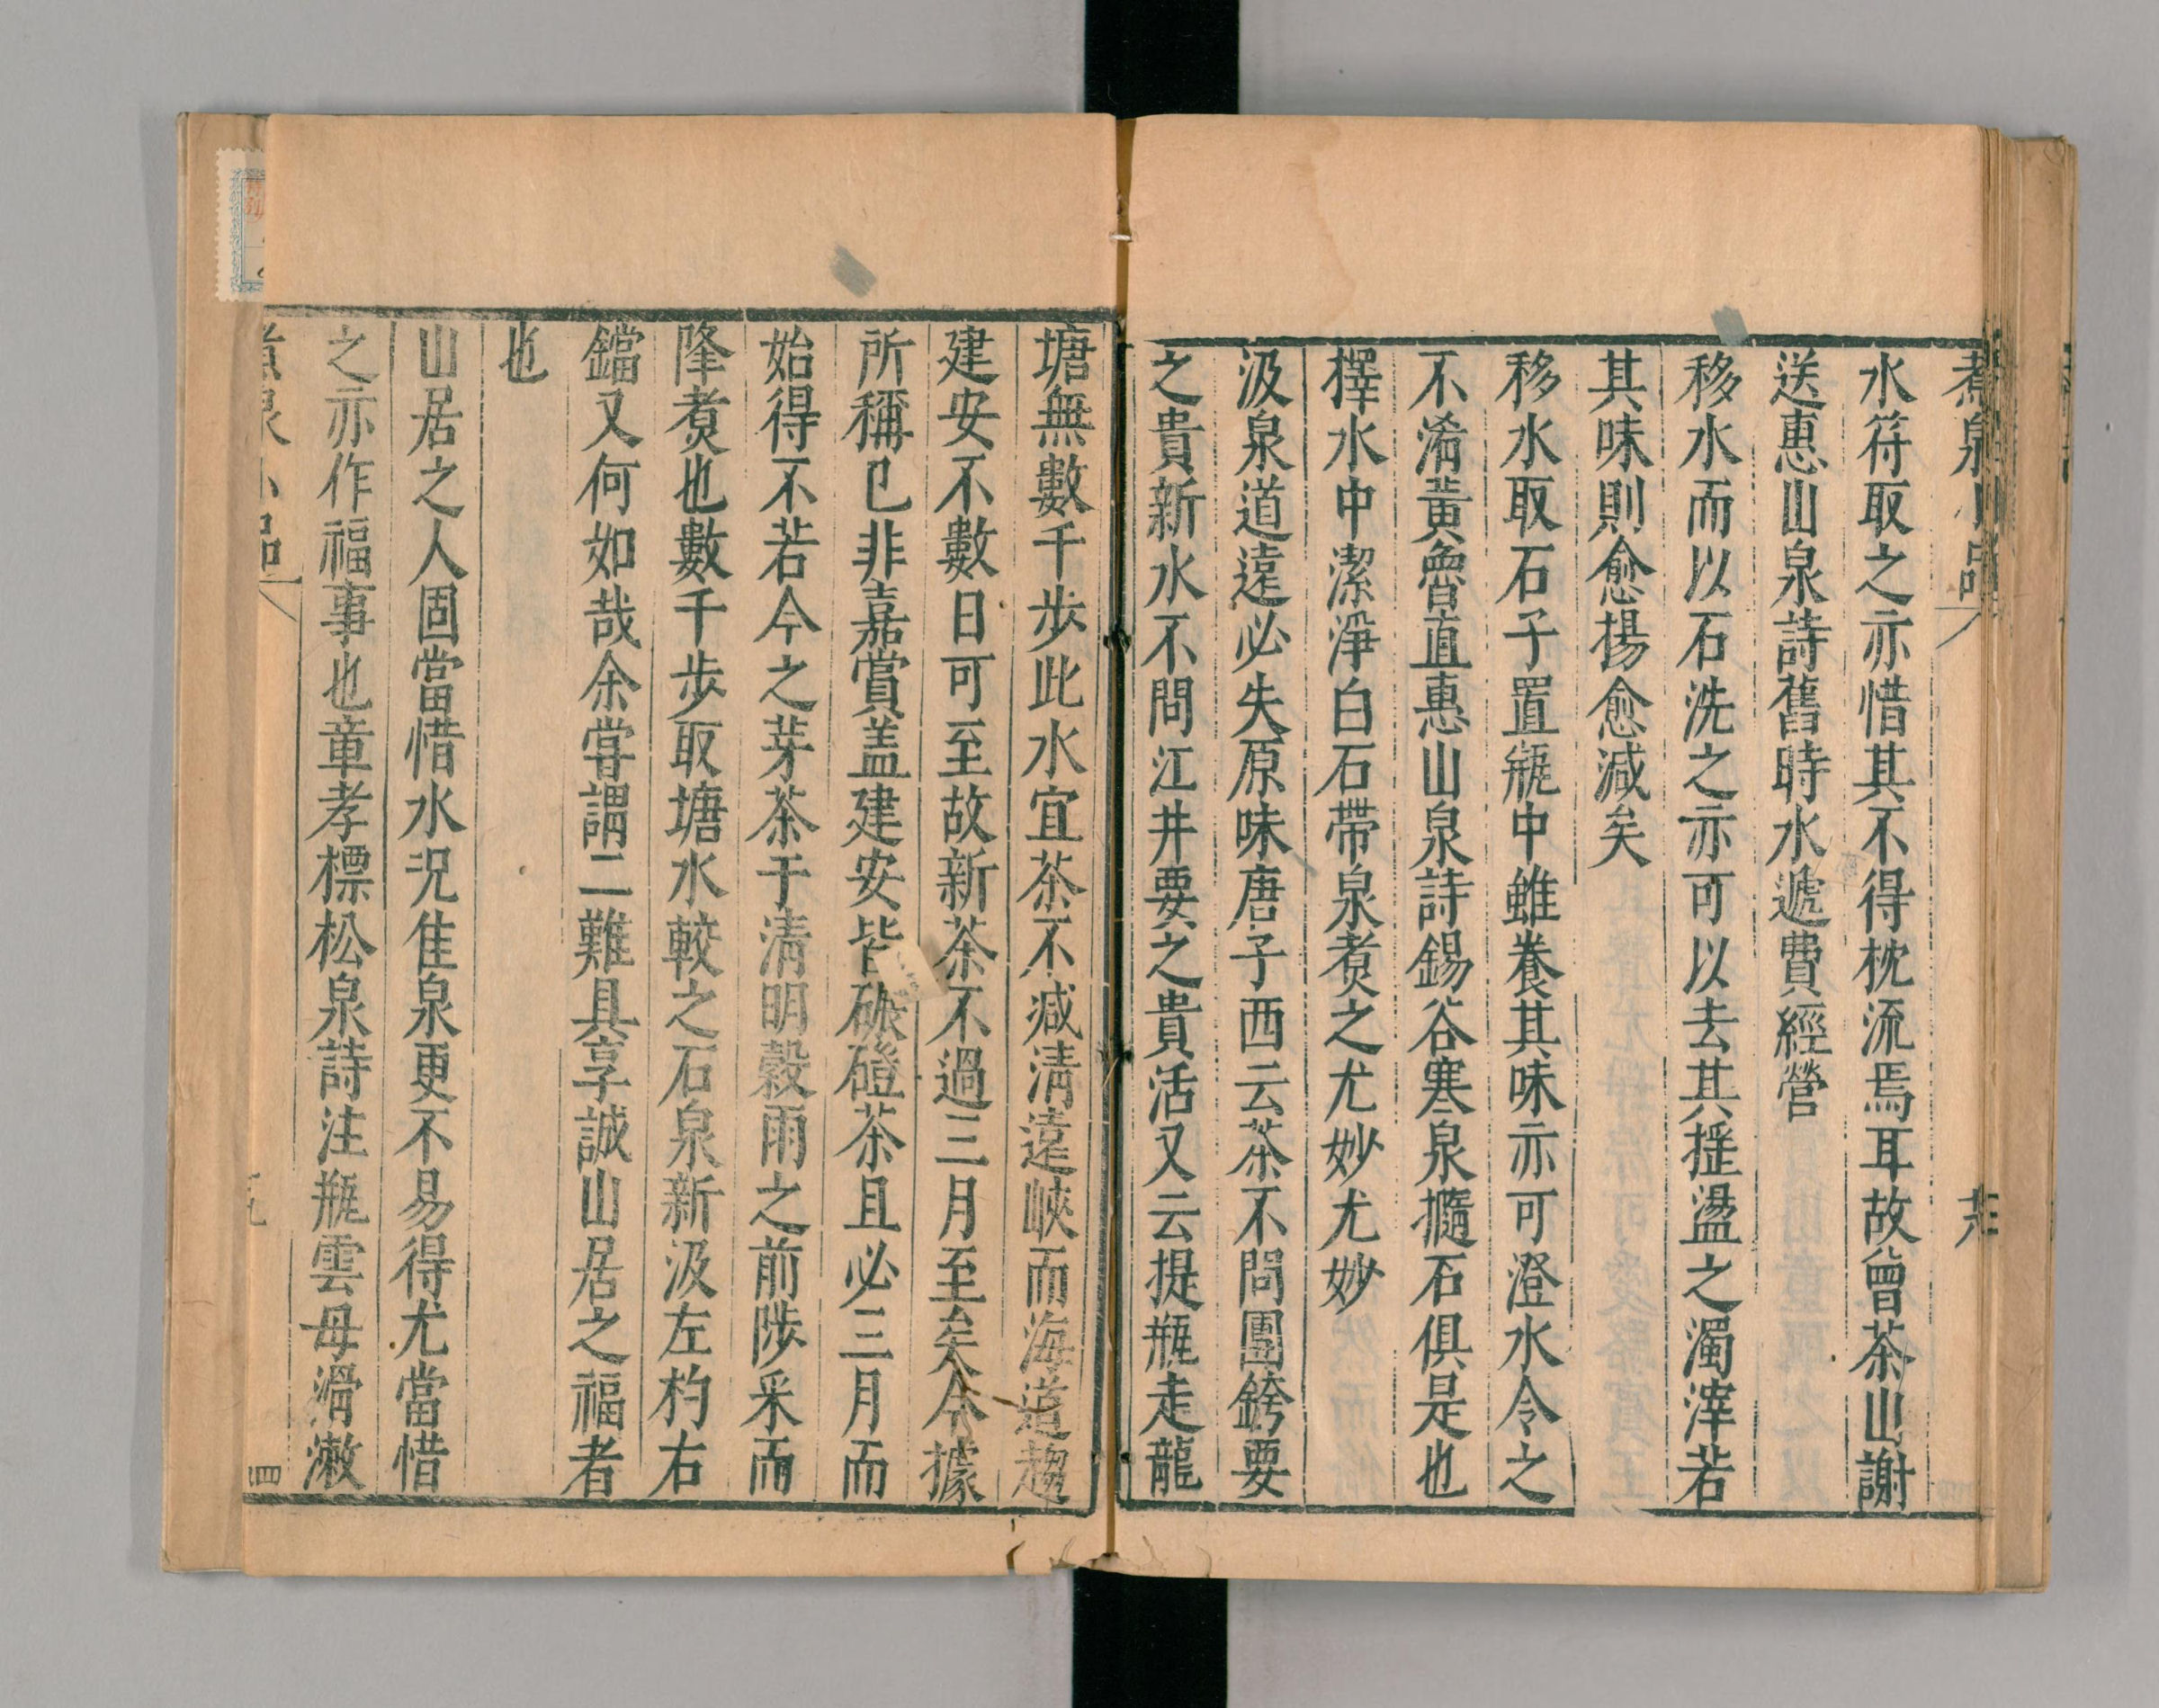 煮泉小品
水符取之亦惜其不得枕流焉耳故曾茶山謝
送惠山泉詩舊時水遞費經營
移水而以石洗之亦可以去其搖盪之濁滓若
其味則愈揚愈減矣
移水取石子置瓶中雖養其味亦可澄水令之
不淆黄魯直惠山泉詩錫谷寒泉𢹂石俱是也
擇水中潔淨白石帶泉煑之尤妙尤妙
汲泉道遠必失原味唐子西云茶不問團銙要
之貴新水不問江井要之貴活又云提瓶走龍
塘無數千步此水宜茶不减清遠峽而海道趨
建安不數日可至故新茶不過三月至矣今據
所稱已非嘉賞盖建安皆碾磑茶且必三月而
始得不若今之芽茶于清明穀雨之前陟采而
降煑也數千步取塘水較之石泉新汲左杓右
鐺又何如哉余嘗謂二難具享誠山居之福者
也
山居之人固當惜水况佳泉更不易得尤當惜
之亦作福事也章孝標松泉詩注瓶雲母滑漱
煮泉小品
四